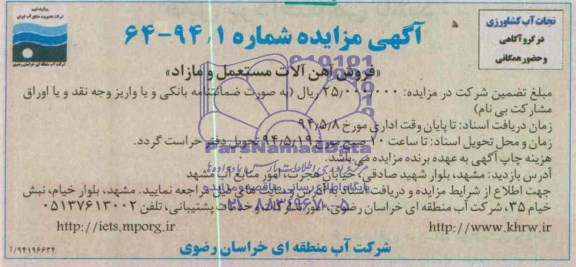 نجات آب کشاورزی
در گرو آگاهی
و حضور همگانی
آگهی مزایده شماره ۹۴٫۱-۶۴
شرکت مدیریت منابع آب ایران
شرکت آب منطقه ای خراسان رضوی
«فروش آهن آلات مستعمل و مازاد»
مبلغ تضمین شرکت در مزایده: ۲۵/۰۰۰/۰۰۰ ریال (به صورت ضمانتنامه بانکی و یا واریز وجه نقد و یا اوراق
مشارکت بی نام)
زمان دریافت اسناد: تا پایان وقت اداری مورخ ۹۴٫۵٫۸
زمان و محل تحویل اسناد: تا ساعت ۱۰ صبح مورخ ۹۴٫۵٫۱۹ تحویل دفتر حراست گردد.
هزینه چاپ آگهی به عهده برنده مزایده می باشد.
آدرس بازدید: مشهد، بلوار شهید صادقی، خیابان هجرت، امور منابع آب مشهد
جهت اطلاع از شرایط مزایده و دریافت اسناد به آدرس سایت های ذیل مراجعه نمایید. مشهد، بلوار خیام، نبش
خیام ۳۵، شرکت آب منطقه ای خراسان رضوی، امور تدارکات و خدمات پشتیبانی، تلفن ۰۵۱۳۷۶۱۳۰۰۲
http://www.khrw.ir
http://iets.mporg.ir
شرکت آب منطقه ای خراسان رضوی
۹۴۱۹۶۶۳۲/آ
ParsNamadData
۰۲۱-۸۸۳۴۹۶۷۰-۵